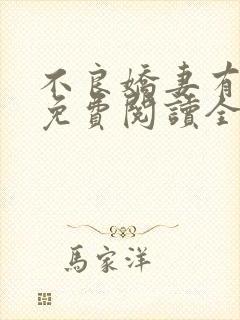 不良嬌妻有
免費閱讀全
馬家洋